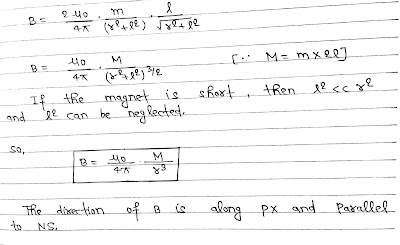 B = 2μ0/4π · m/(r²+l²) · l/√r²+l²
B = μ0/4π · M/(r²+l²)^3/2 [∵ M = m×2l]
If the magnet is short, then l² << r²
and l² can be neglected.
So,
B = μ0/4π · M/r³
The direction of B is along PX and parallel
to NS.